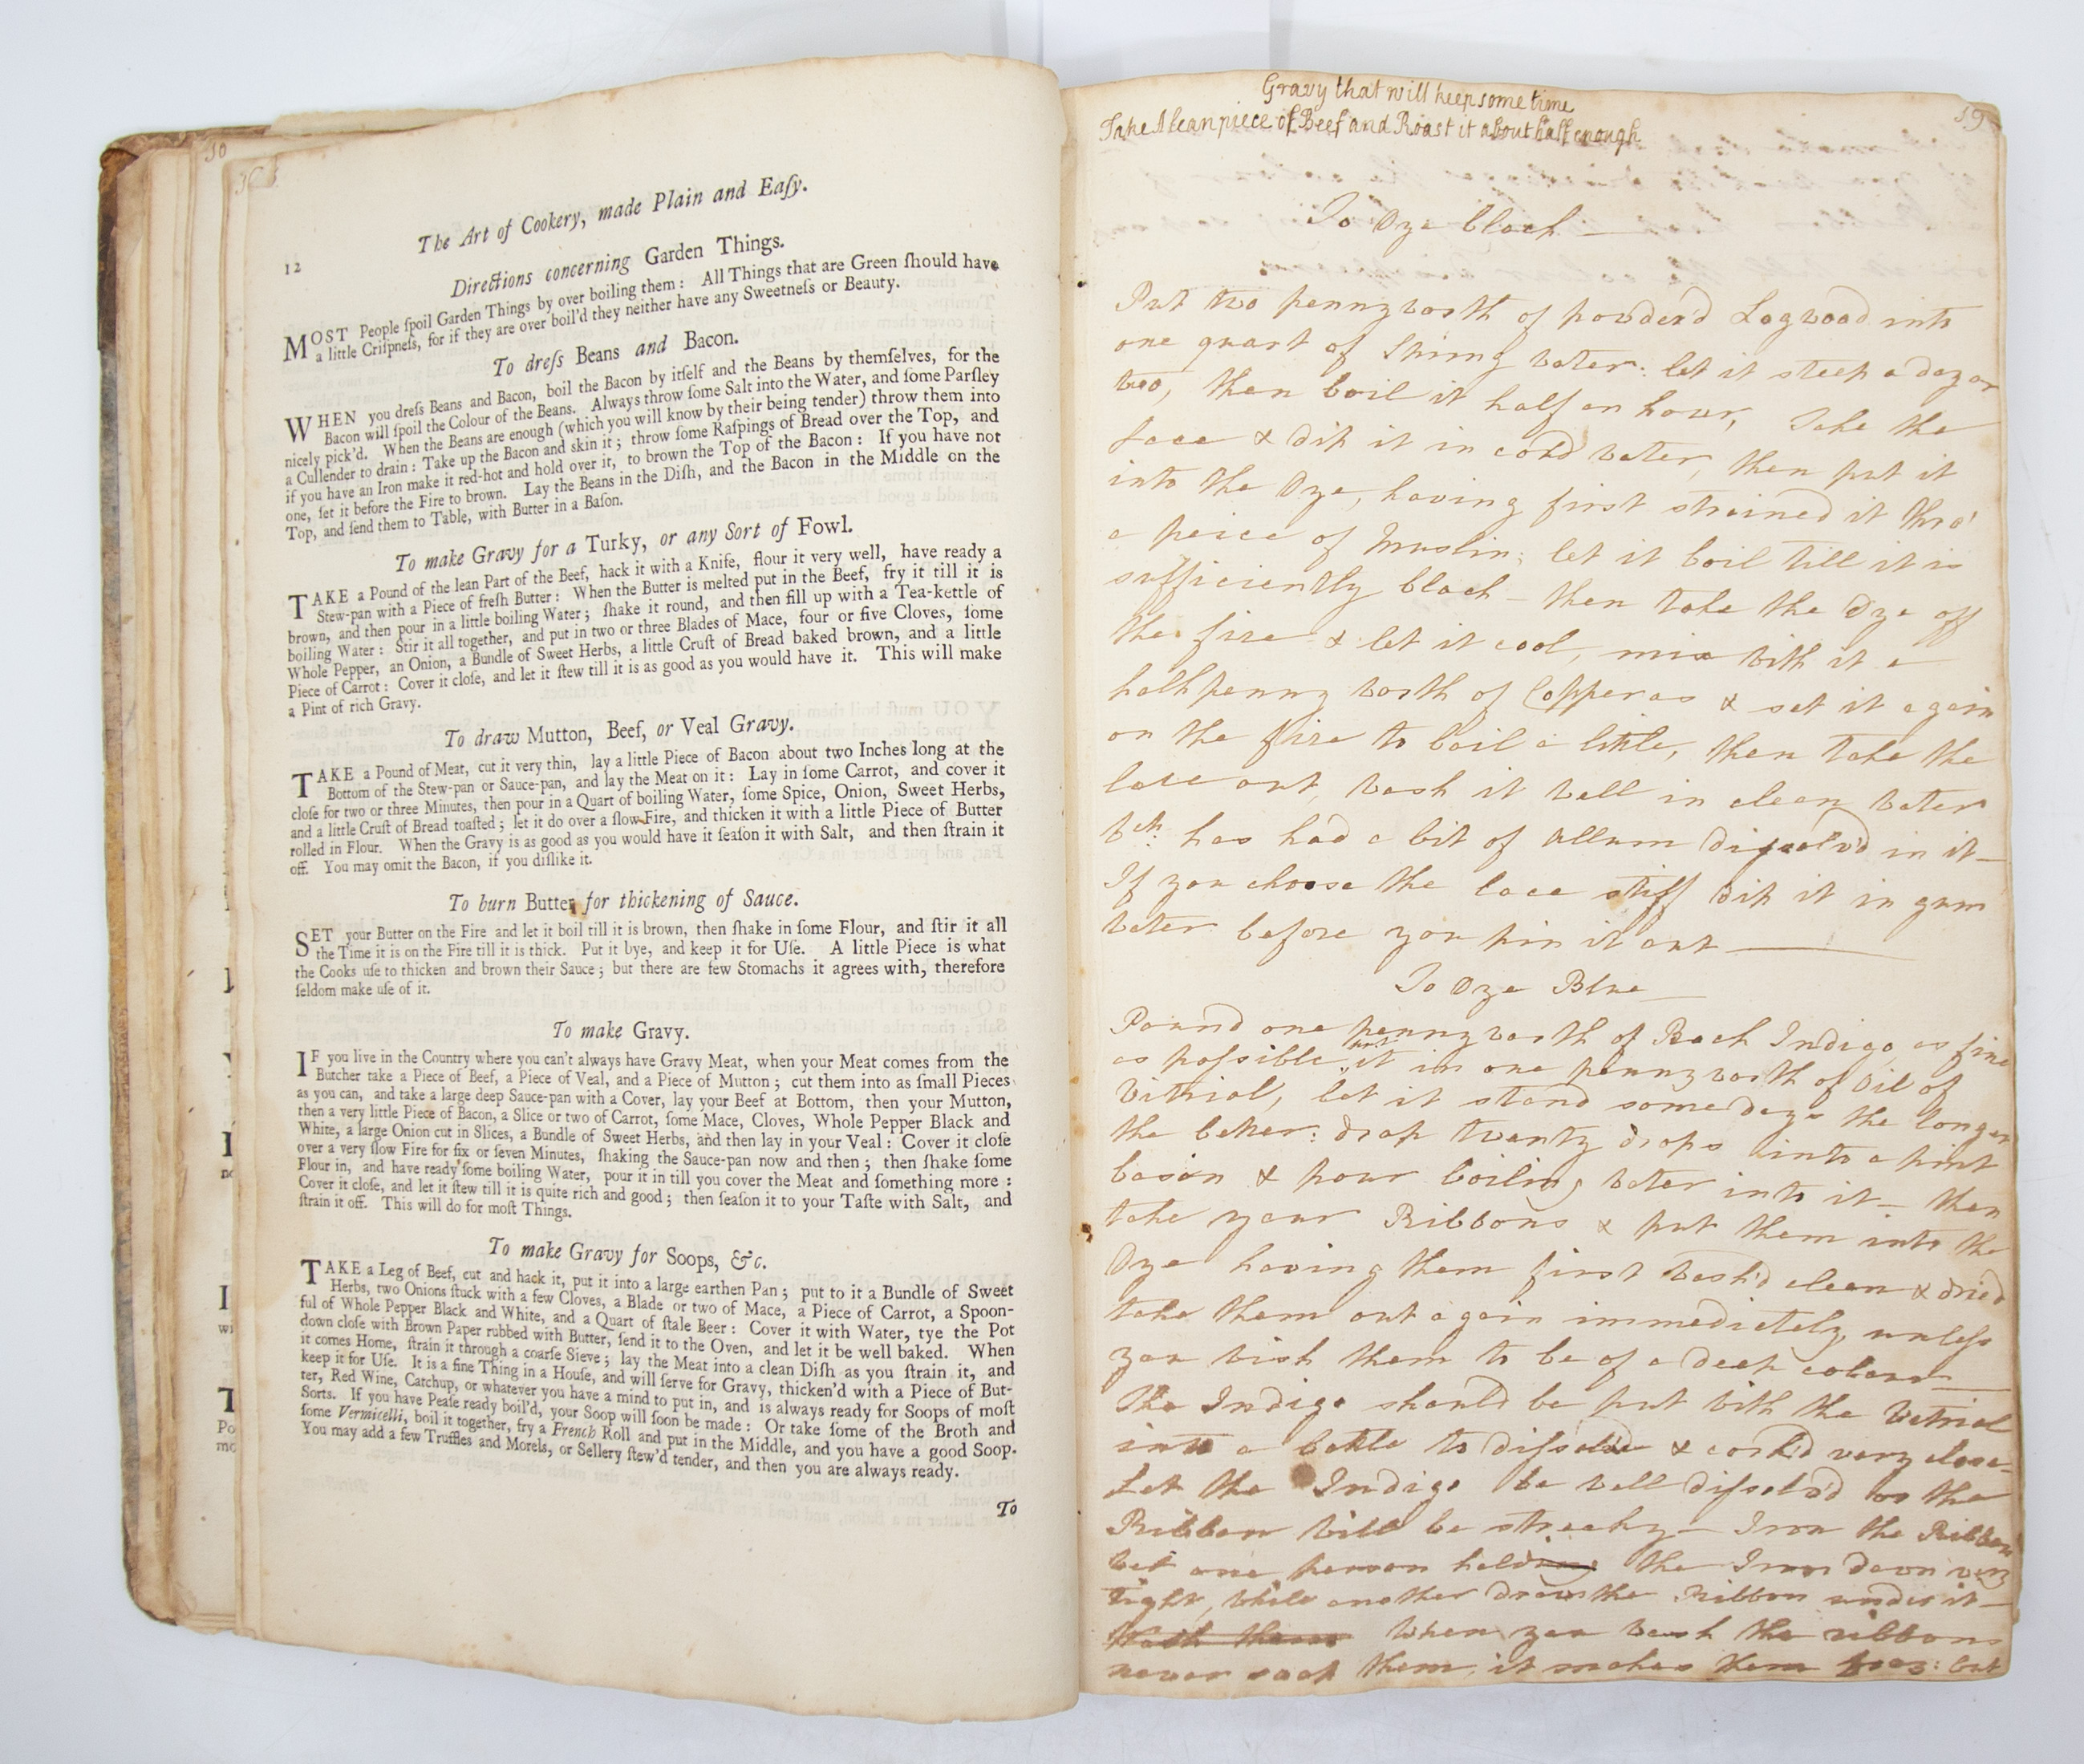 10
36
12
The Art of Cookery, made Plain and Eaſy.
Directions concerning Garden Things.
MOST People ſpoil Garden Things by over boiling them: All Things that are Green ſhould have
a little Criſpneſs, for if they are over boil'd they neither have any Sweetneſs or Beauty.
To dreſs Beans and Bacon.
WHEN you dreſs Beans and Bacon, boil the Bacon by itſelf and the Beans by themſelves, for the
Bacon will ſpoil the Colour of the Beans. Always throw ſome Salt into the Water, and ſome Parſley
nicely pick'd. When the Beans are enough (which you will know by their being tender) throw them into
a Cullender to drain: Take up the Bacon and skin it; throw ſome Raſpings of Bread over the Top, and
if you have an Iron make it red-hot and hold over it, to brown the Top of the Bacon: If you have not
one, ſet it before the Fire to brown. Lay the Beans in the Diſh, and the Bacon in the Middle on the
Top, and ſend them to Table, with Butter in a Baſon.
To make Gravy for a Turky, or any Sort of Fowl.
TAKE a Pound of the lean Part of the Beef, hack it with a Knife, flour it very well, have ready a
Stew-pan with a Piece of freſh Butter: When the Butter is melted put in the Beef, fry it till it is
brown, and then pour in a little boiling Water; ſhake it round, and then fill up with a Tea-kettle of
boiling Water: Stir it all together, and put in two or three Blades of Mace, four or five Cloves, ſome
Whole Pepper, an Onion, a Bundle of Sweet Herbs, a little Cruſt of Bread baked brown, and a little
Piece of Carrot: Cover it cloſe, and let it ſtew till it is as good as you would have it. This will make
a Pint of rich Gravy.
To draw Mutton, Beef, or Veal Gravy.
TAKE a Pound of Meat, cut it very thin, lay a little Piece of Bacon about two Inches long at the
Bottom of the Stew-pan or Sauce-pan, and lay the Meat on it: Lay in ſome Carrot, and cover it
cloſe for two or three Minutes, then pour in a Quart of boiling Water, ſome Spice, Onion, Sweet Herbs,
and a little Cruſt of Bread toaſted; let it do over a ſlow Fire, and thicken it with a little Piece of Butter
rolled in Flour. When the Gravy is as good as you would have it ſeaſon it with Salt, and then ſtrain it
off. You may omit the Bacon, if you diſlike it.
To burn Butter for thickening of Sauce.
SET your Butter on the Fire and let it boil till it is brown, then ſhake in ſome Flour, and ſtir it all
the Time it is on the Fire till it is thick. Put it bye, and keep it for Uſe. A little Piece is what
the Cooks uſe to thicken and brown their Sauce; but there are few Stomachs it agrees with, therefore
ſeldom make uſe of it.
To make Gravy.
IF you live in the Country where you can't always have Gravy Meat, when your Meat comes from the
Butcher take a Piece of Beef, a Piece of Veal, and a Piece of Mutton; cut them into as ſmall Pieces
as you can, and take a large deep Sauce-pan with a Cover, lay your Beef at Bottom, then your Mutton,
then a very little Piece of Bacon, a Slice or two of Carrot, ſome Mace, Cloves, Whole Pepper Black and
White, a large Onion cut in Slices, a Bundle of Sweet Herbs, and then lay in your Veal: Cover it cloſe
over a very ſlow Fire for ſix or ſeven Minutes, ſhaking the Sauce-pan now and then; then ſhake ſome
Flour in, and have ready ſome boiling Water, pour it in till you cover the Meat and ſomething more:
Cover it cloſe, and let it ſtew till it is quite rich and good; then ſeaſon it to your Taſte with Salt, and
ſtrain it off. This will do for moſt Things.
To make Gravy for Soops, &c.
TAKE a Leg of Beef, cut and hack it, put it into a large earthen Pan; put to it a Bundle of Sweet
Herbs, two Onions ſtuck with a few Cloves, a Blade or two of Mace, a Piece of Carrot, a Spoon-
ful of Whole Pepper Black and White, and a Quart of ſtale Beer: Cover it with Water, tye the Pot
down cloſe with Brown Paper rubbed with Butter, ſend it to the Oven, and let it be well baked. When
it comes Home, ſtrain it through a coarſe Sieve; lay the Meat into a clean Diſh as you ſtrain it, and
keep it for Uſe. It is a fine Thing in a Houſe, and will ſerve for Gravy, thicken'd with a Piece of But-
ter, Red Wine, Catchup, or whatever you have a mind to put in, and is always ready for Soops of moſt
Sorts. If you have Peaſe ready boil'd, your Soop will ſoon be made: Or take ſome of the Broth and
ſome Vermicelli, boil it together, fry a French Roll and put in the Middle, and you have a good Soop.
You may add a few Truffles and Morels, or Sellery ſtew'd tender, and then you are always ready.
To
19
Gravy that will keep some time
Take A lean piece of Beef and Roast it about half enough
To Dye black
Put two pennyworth of powderd Logwood into
one quart of Spring water: let it steep a day or
two, then boil it half an hour, Take the
lace & dip it in cold water, then put it
into the Dye, having first strained it thro'
a peice of Muslin; let it boil till it is
sufficiently black — then take the Dye off
the fire & let it cool, mix with it a
halfpenny worth of Copperas & set it again
on the fire to boil a little, then take the
lace out, wash it well in clean water
wch. has had a bit of Allum dissolv'd in it —
If you choose the lace stiff dip it in gum
water before you pin it out —
To Dye Blue —
Pound one pennyworth of Rock Indigo, as fine
as poſsible, put it in one pennyworth of Oil of
Vitriol, let it stand some days the longer
the better: drop twenty drops into a pint
bason & pour boiling water into it — then
take your Ribbons & put them into the
Dye having them first wash'd clean & dried
take them out again immediately unleſs
you wish them to be of a deep colour —
The Indigo should be put with the Vitriol
into a bottle to diſsolve & cork'd very close —
Let the Indigo be well diſsolv'd or the
Ribbon will be streaky — Iron the Ribbon
wet one person holding the Iron down very
tight, while another draws the Ribbon under it —
Wash them When you wash the ribbons
never soak them, it makes them : but